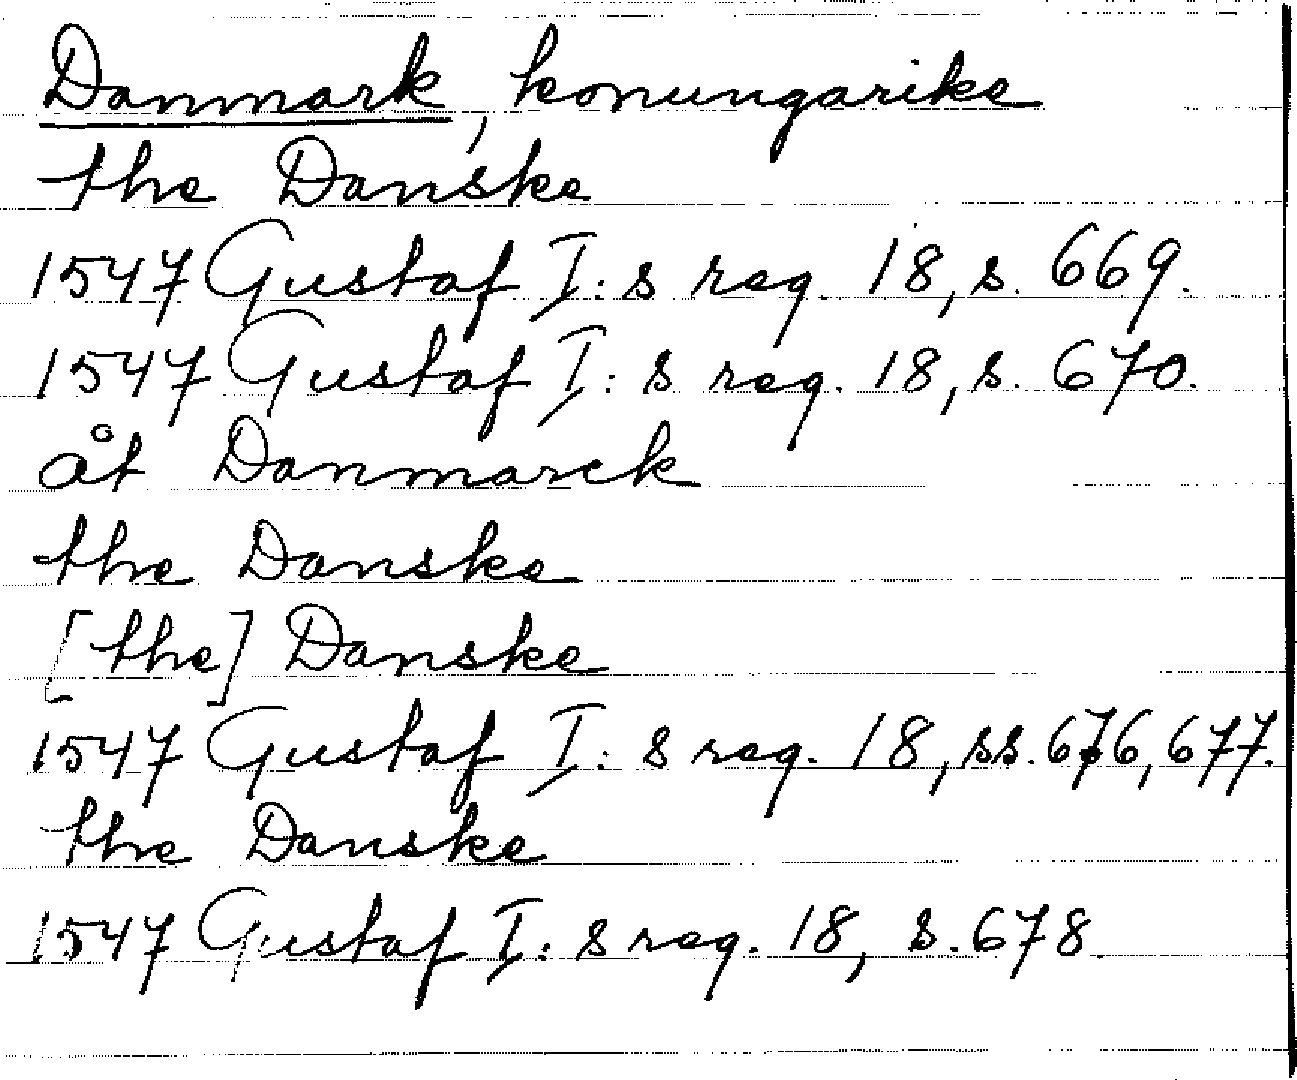 Danmark, konungarike
the Danske
1547 Gustaf I:s reg. 18, s. 669.
1547 Gustaf I:s reg. 18, s. 670.
åt Danmarck
the Danske
[the] Danske
1547 Gustaf I:s reg. 18, ss. 676, 677.
the Danske
1547 Gustaf I:s reg. 18, s. 678